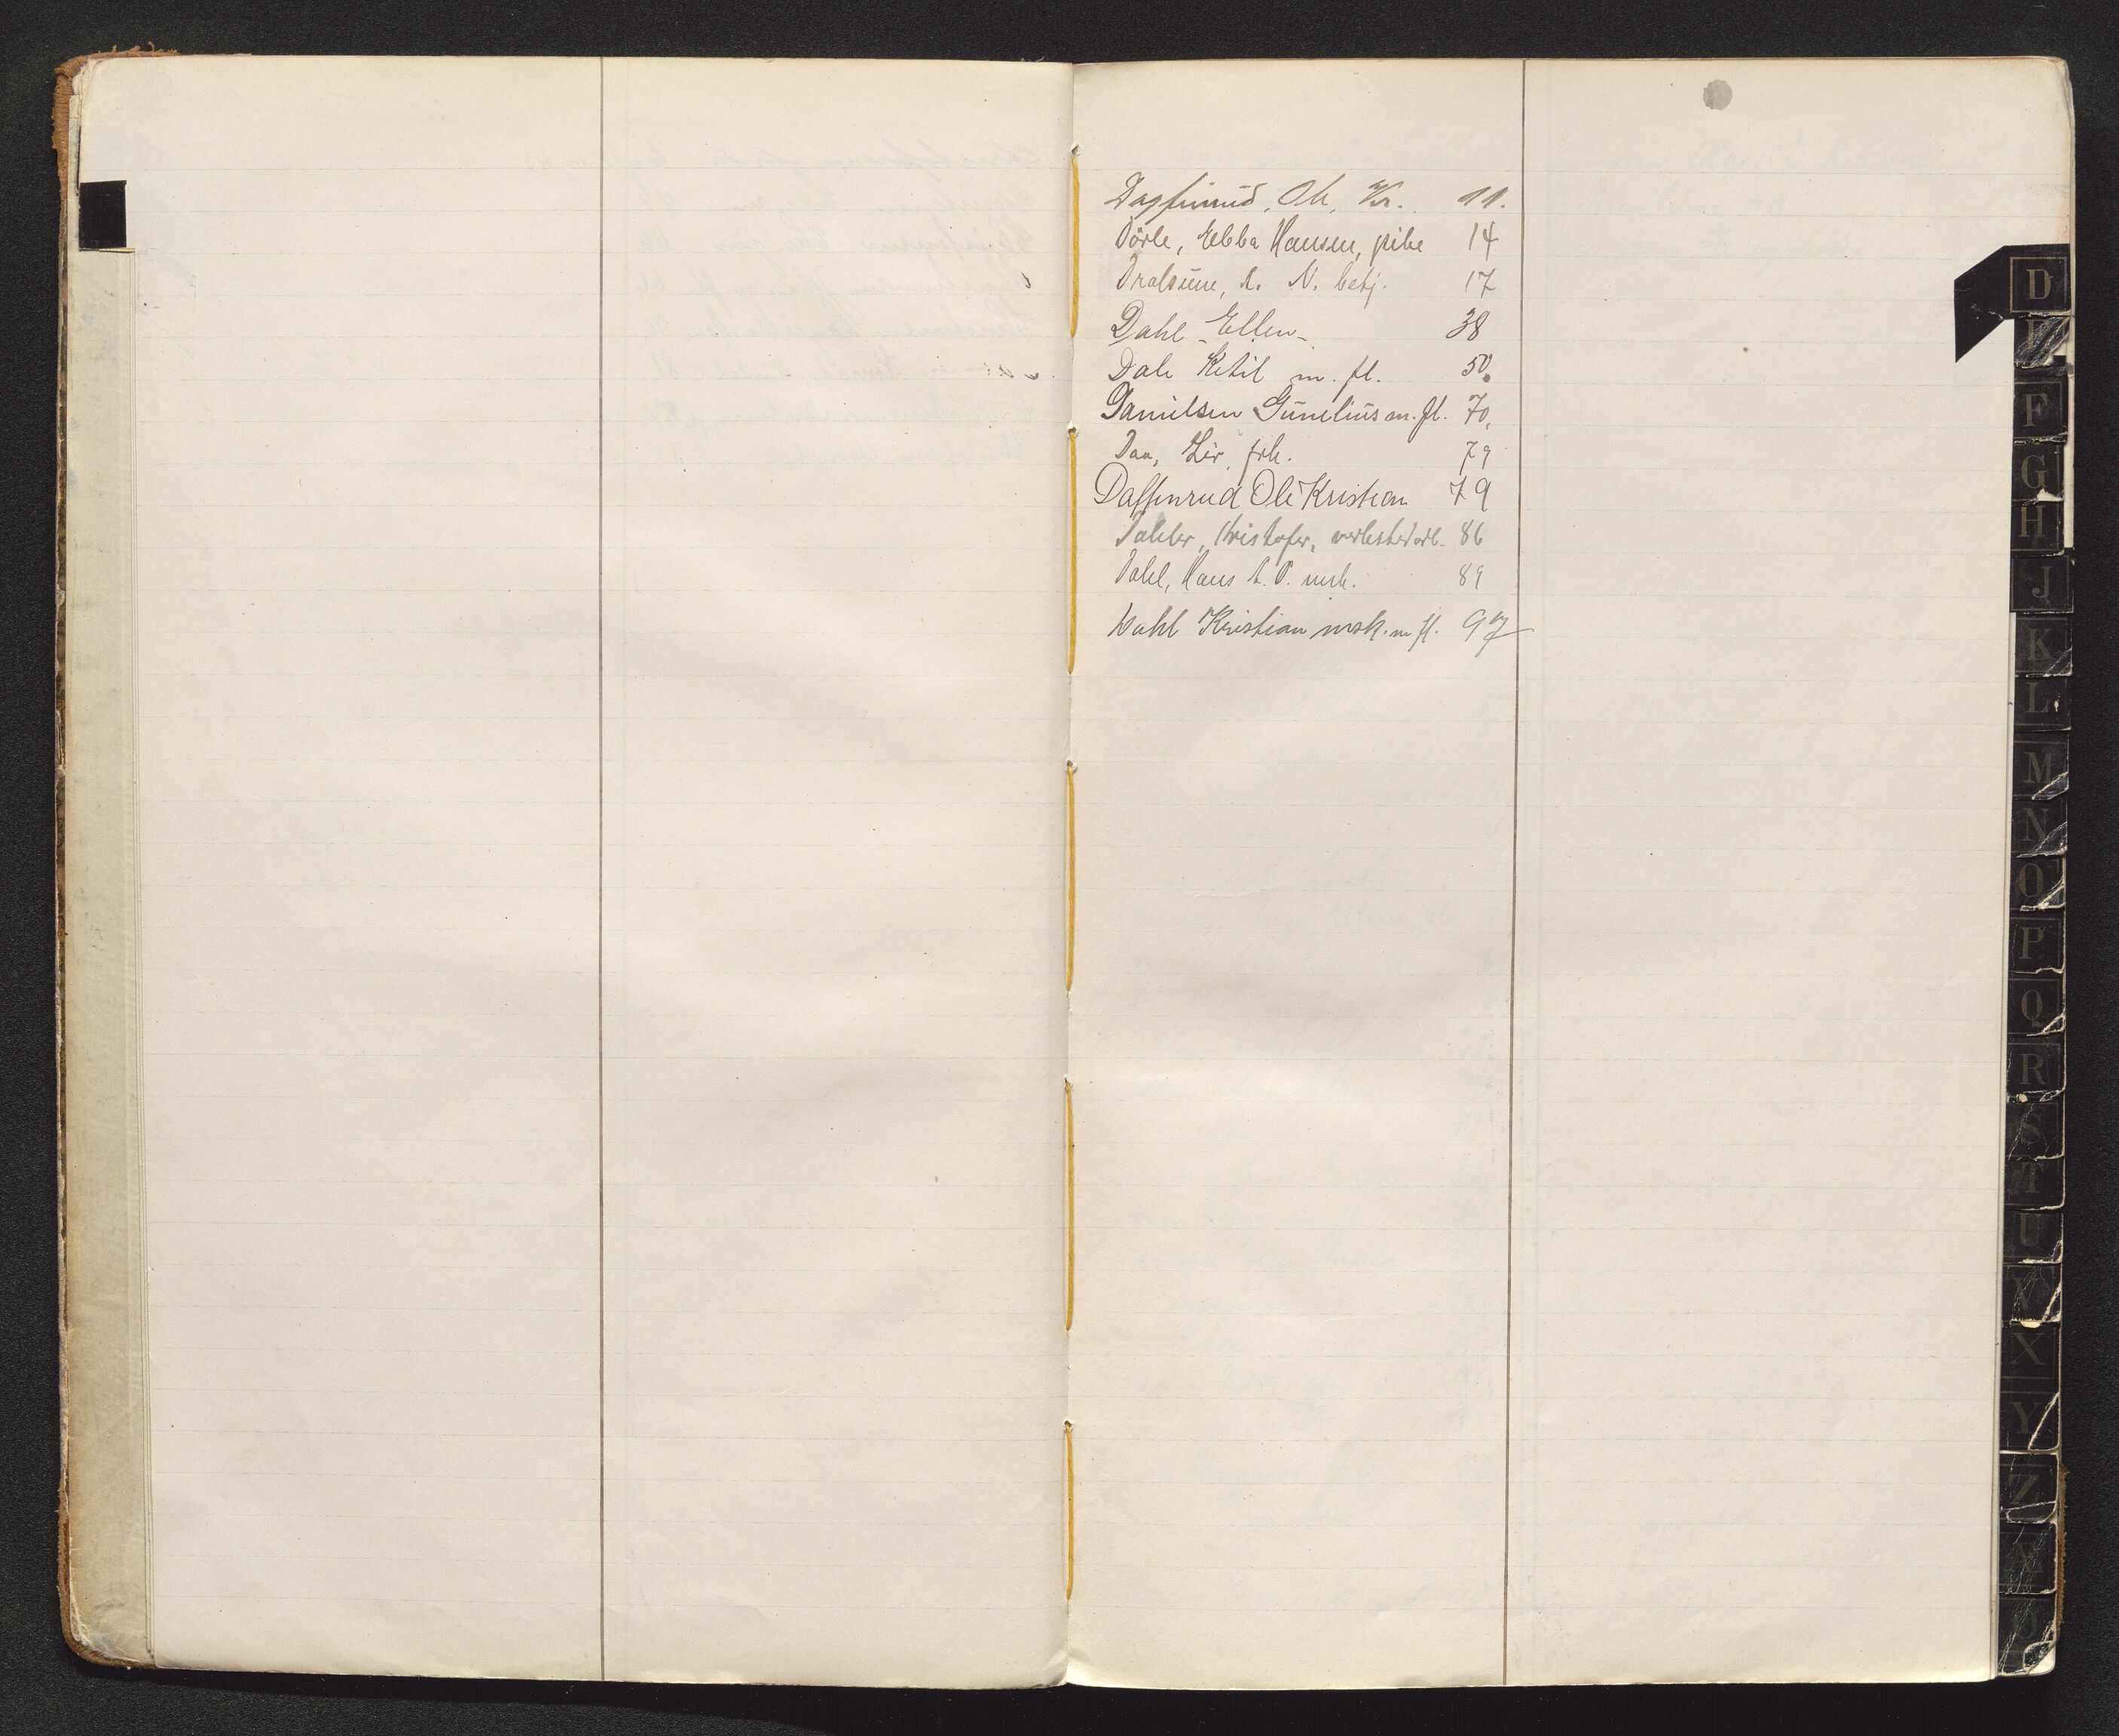 Dagfinrud, Ole, Kr. 11.
Dörle, Ebba Hansen, pike 14
A. N. betj. 17
Dahl - Ellen - 38
Dale Ketil m. fl. 50.
Danielsen Gunelius m. fl. 70.
Daa, Liv, frk. 79
Daffinrud Ole Kristian 79
Dahler, Kristofer, verkstedarb. 86
Dahl, Hans A. O. msk. 89
Dahl Kristian msk. m fl. 97
D
F
G
H
J
K
L
M
N
O
P
Q
R
S
T
U
V
X
Y
Z